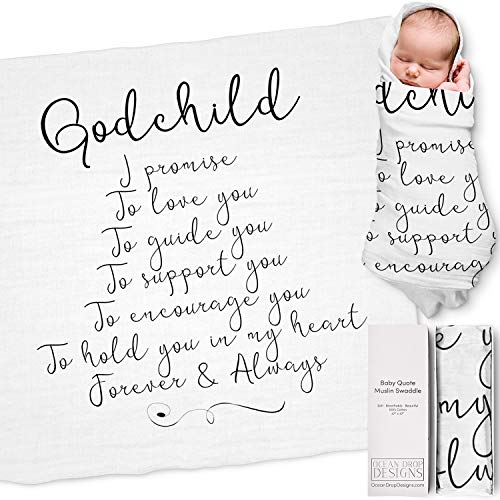 Godchild
I promise
To love you
To guide you
To support you
To encourage you
To hold you in my heart
Forever & Always
Godchild
I promise
To love you
To guide you
To support yo
To encourage
Baby Quote
Muslin Swaddle
Soft · Breathable · Beautiful
100% Cotton
47" x 47"
OCEAN DROP
DESIGNS
OceanDropDesigns.com
my
lw